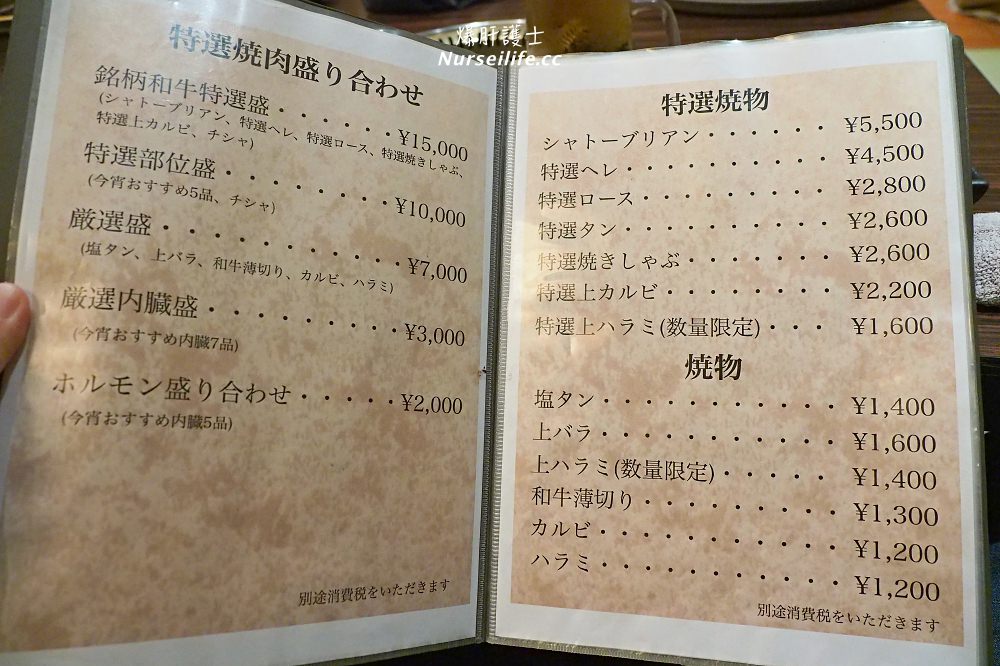 爆肝護士
Nurseilife.cc
特選焼肉盛り合わせ
銘柄和牛特選盛・・・・・・¥15,000
(シャトーブリアン、特選ヘレ、特選ロース、特選焼きしゃぶ、
特選上カルビ、チシャ)
特選部位盛・・・・・・・・¥10,000
(今宵おすすめ5品、チシャ)
厳選盛・・・・・・・・・・・¥7,000
(塩タン、上バラ、和牛薄切り、カルビ、ハラミ)
厳選内臓盛・・・・・・・・・¥3,000
(今宵おすすめ内臓7品)
ホルモン盛り合わせ・・・・・¥2,000
(今宵おすすめ内臓5品)
別途消費税をいただきます
特選焼物
シャトーブリアン・・・・・・¥5,500
特選ヘレ・・・・・・・・・¥4,500
特選ロース・・・・・・・・¥2,800
特選タン・・・・・・・・・¥2,600
特選焼きしゃぶ・・・・・・¥2,600
特選上カルビ・・・・・・・¥2,200
特選上ハラミ(数量限定)・・・¥1,600
焼物
塩タン・・・・・・・・・・¥1,400
上バラ・・・・・・・・・・¥1,600
上ハラミ(数量限定)・・・・・¥1,400
和牛薄切り・・・・・・・・¥1,300
カルビ・・・・・・・・・・¥1,200
ハラミ・・・・・・・・・・¥1,200
別途消費税をいただきます